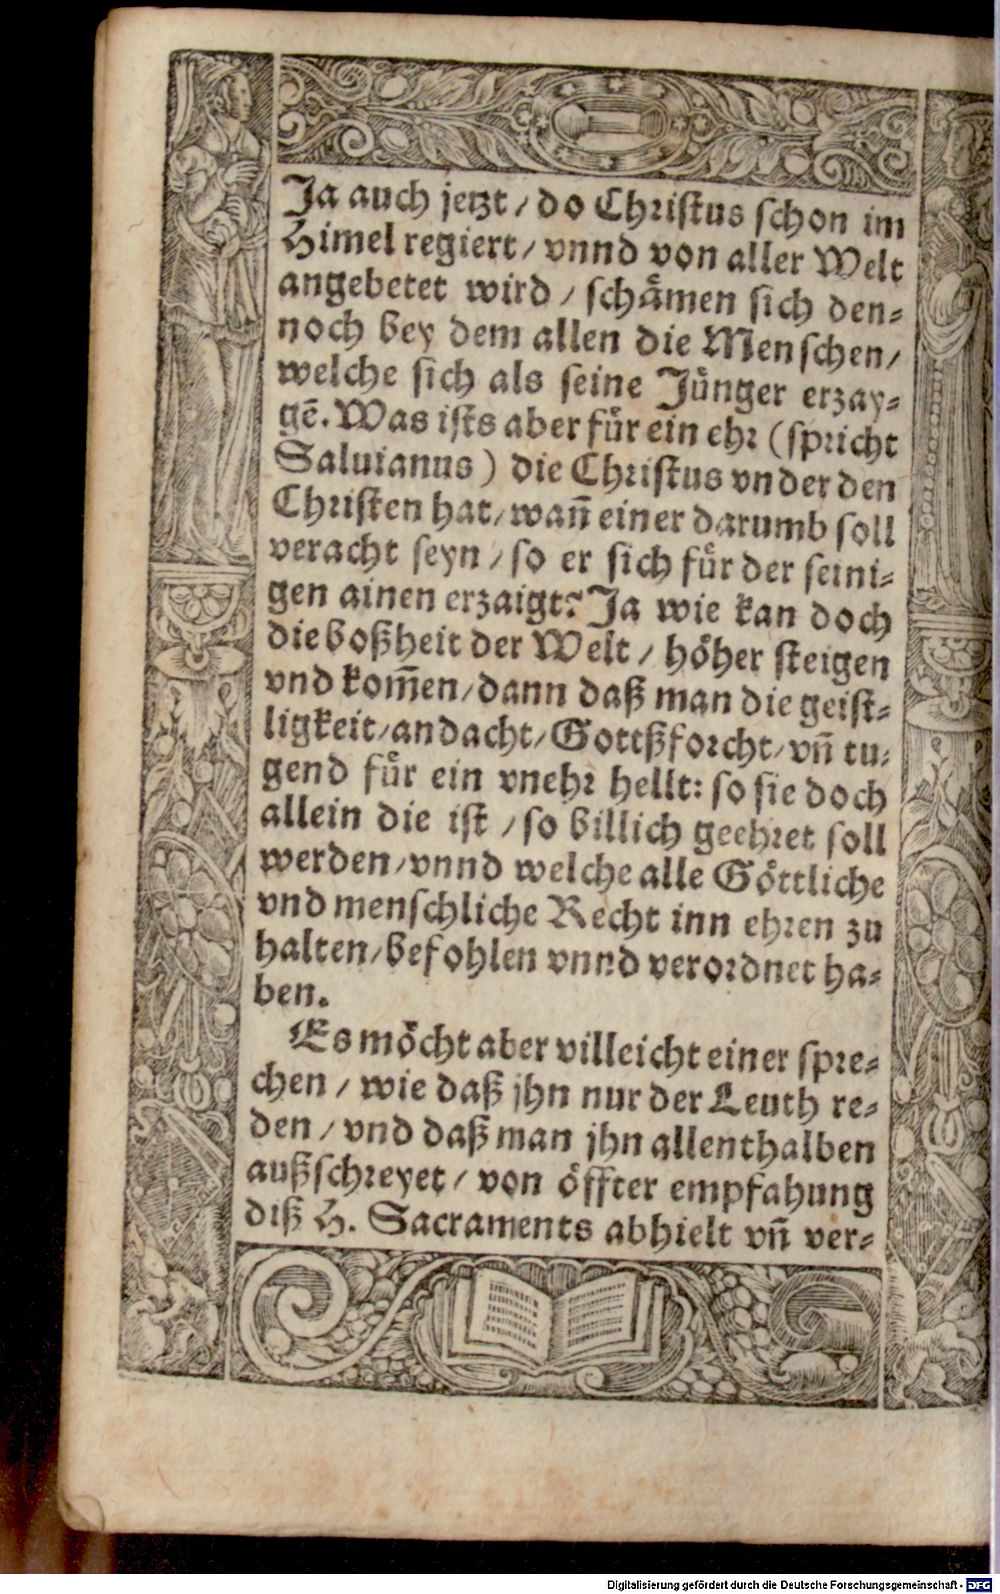 Ja auch jetzt / do Christus schon im
Himel regiert / vnnd von aller Welt
angebetet wird / schämen sich den⸗
noch bey dem allen die Menschen /
welche sich als seine Jünger erzay⸗
gẽ. Was ists aber für ein ehr (spricht
Saluianus) die Christus vnder den
Christen hat / wañ einer darumb soll
veracht seyn / so er sich für der seini⸗
gen ainen erzaigt? Ja wie kan doch
die boßheit der Welt / höher steigen
vnd kom̃en / dann daß man die geist⸗
ligkeit / andacht / Gottßforcht / vñ tu⸗
gend für ein vnehr hellt: so sie doch
allein die ist / so billich geehret soll
werden / vnnd welche alle Göttliche
vnd menschliche Recht inn ehren zu
halten / befohlen vnnd verordnet ha⸗
ben.
Es möcht aber villeicht einer spre⸗
chen / wie daß jhn nur der Leuth re⸗
den / vnd daß man jhn allenthalben
außschreyet / von öffter empfahung
diß H. Sacraments abhielt vñ ver⸗
Digitalisierung gefördert durch die Deutsche Forschungsgemeinschaft - DFG